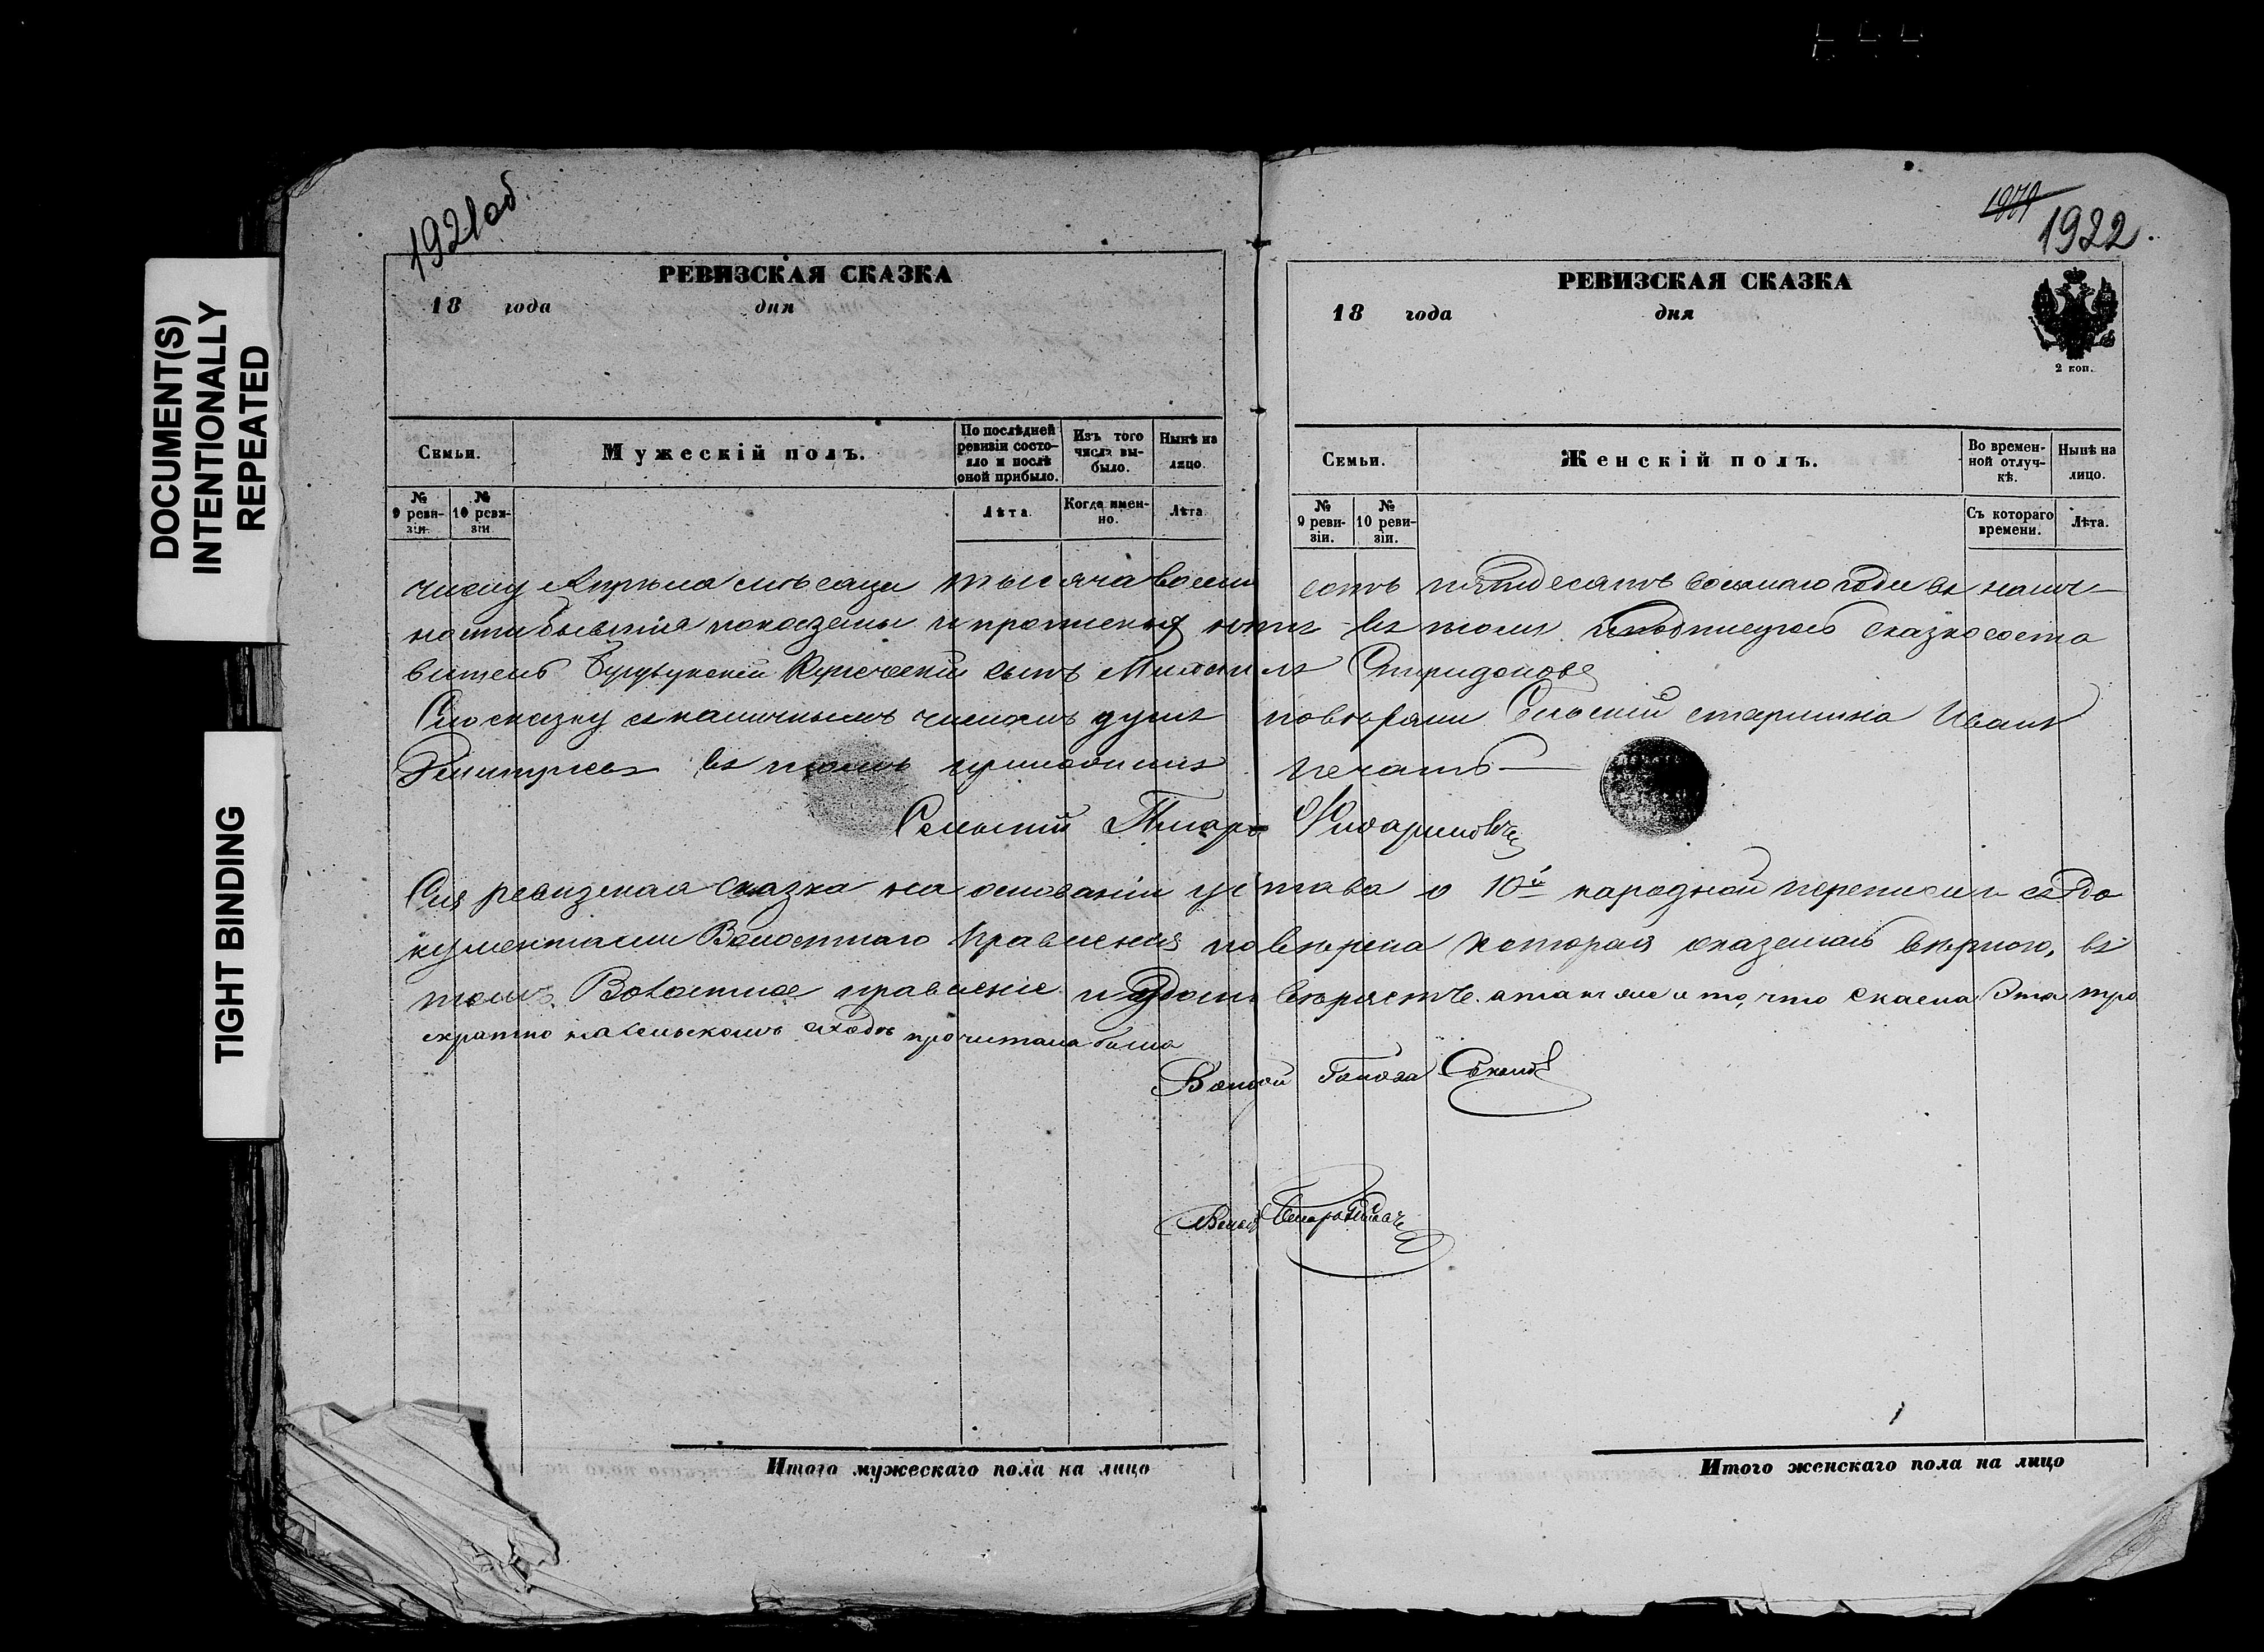 DOCUMENT(S)
INTENTIONALLY
REPEATED
TIGHT BINDING
1921об.
РЕВИЗСКАЯ СКАЗКА
18 года дня
Семьи.
Мужескій полъ.
По послѣдней ревизіи состояло и послѣ оной прибыло.
Изъ того числа выбыло.
Нынѣ на лицо.
№ 9 ревизіи.
№ 10 ревизіи.
Лѣта.
Когда именно.
Лѣта.
1922.
РЕВИЗСКАЯ СКАЗКА
18 года дня
2 коп.
Семьи.
Женскій полъ.
Во временной отлучкѣ.
Нынѣ на лицо.
№ 9 ревизіи.
№ 10 ревизіи.
Съ котораго времени.
Лѣта.
числу Апрѣля мѣсяца тысяча восемь сотъ пятдесятъ восьмаго года въ налич-
ности бывшія показаны и нѣтъ въ томъ и подписуюсь сказкососта
витель купеческій сынъ Михаилъ Спиридоновъ
Сію сказку съ наличнымъ числомъ душъ повѣрялъ Сельскій старшина Иванъ
въ томъ печать
Сельскій Писарь
Сія ревизская сказка на основаніи устава о 10й народной переписи съ до
кументами Волостнаго Правленія повѣрена которая оказалась вѣрною, въ
томъ Волостное правленіе и а также и то, что сказка эта тро
екратно на сельскомъ сходѣ прочитана была
Волостной Голова
Итого мужескаго пола на лицо
Итого женскаго пола на лицо